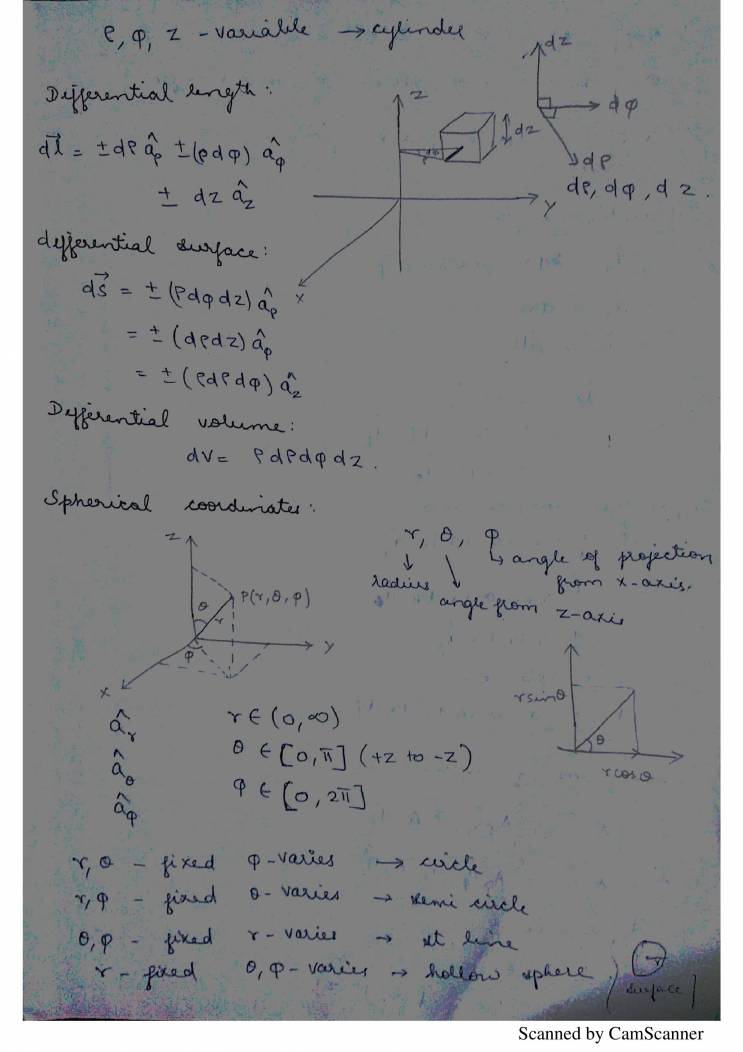 ρ, φ, z - variable → cylinder
Differential length:
dl⃗ = ± dρ â_ρ ± (ρdφ) â_φ
± dz â_z
z
dz
y
x
dz
dφ
dρ
dρ, dφ, dz.
differential surface:
ds⃗ = ± (ρdφdz) â_ρ
= ± (dρdz) â_φ
= ± (ρdρdφ) â_z
Differential volume:
dv = ρdρdφdz.
Spherical coordinates:
z
θ
r
P(r,θ,φ)
φ
y
x
r, θ, φ
↳ angle of projection
from x-axis.
↓
radius
angle from z-axis
r sinθ
θ
r cosθ
â_r r ∈ (0,∞)
â_θ θ ∈ [0,π] (+z to -z)
â_φ φ ∈ [0, 2π]
r, θ - fixed φ-varies → circle
r, φ - fixed θ-varies → semi circle
θ, φ - fixed r-varies → st line
r - fixed θ, φ-varies → hollow sphere
r
surface
Scanned by CamScanner